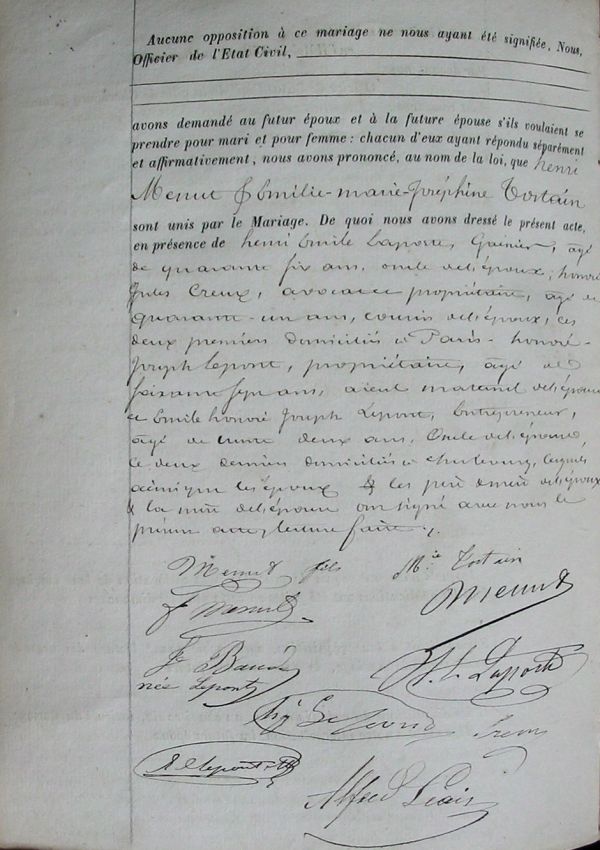 Aucune opposition à ce mariage ne nous ayant été signifiée, Nous,
Officier de l'Etat Civil,
avons demandé au futur époux et à la future épouse s'ils voulaient se
prendre pour mari et pour femme : chacun d'eux ayant répondu séparément
et affirmativement, nous avons prononcé, au nom de la loi, que henri
Menut & Emilie-marie-Joséphine Tostain
sont unis par le Mariage. De quoi nous avons dressé le présent acte,
en présence de henri Emile Laporte, Gainier, âgé
de quarante six ans, oncle de l'époux; honoré
Jules Creux, avocat propriétaire, âgé de
quarante-un ans, cousin de l'époux, ces
deux premiers domiciliés à Paris - honoré-
Joseph Lepont, propriétaire, âgé de
soixante sept ans, aïeul maternel de l'épouse
et Emile honoré Joseph Lepont, Entrepreneur,
âgé de trente deux ans, Oncle de l'épouse,
ce deux derniers domiciliés à cherbourg, lesquels
ainsi que les époux & les père & mère de l'époux
& la mère de l'épouse ont signé avec nous le
présent acte, lecture faite.
Menut fils
M.ie Tostain
Menut
née Lepont
H. E. Laporte
Creux
Alfred Liais